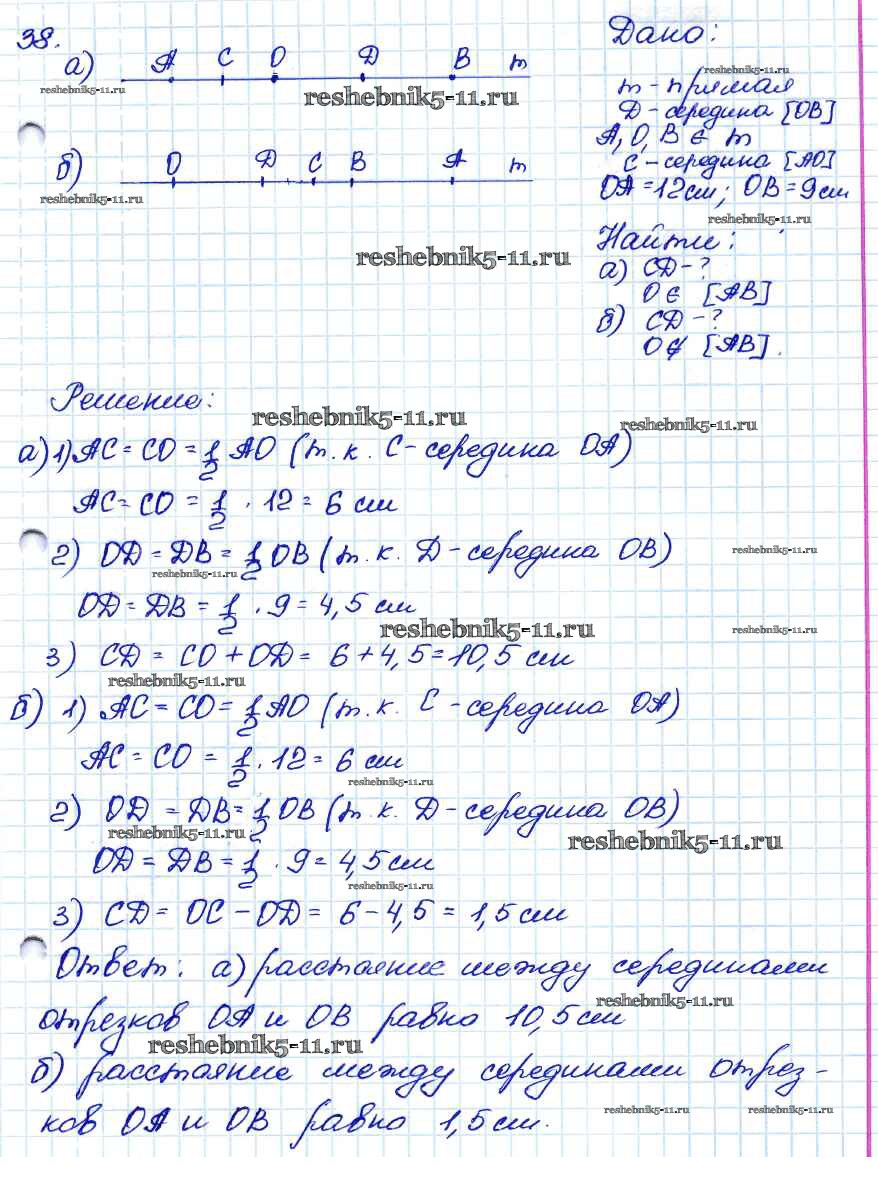 38.
а) А С О D В m
reshebnik5-11.ru
reshebnik5-11.ru
б) О D С В А m
reshebnik5-11.ru
reshebnik5-11.ru
Дано:
reshebnik5-11.ru
m - прямая
D - середина [OB]
A, O, B ∈ m
C - середина [AO]
OA = 12 см; OB = 9 см
reshebnik5-11.ru
Найти:
а) CD - ?
O ∈ [AB]
б) CD - ?
O ∉ [AB].
Решение:
reshebnik5-11.ru
reshebnik5-11.ru
а) 1) AC = CO = 1/2 AO (т.к. C - середина OA)
AC = CO = 1/2 · 12 = 6 см
2) OD = DB = 1/2 OB (т.к. D - середина OB)
reshebnik5-11.ru
reshebnik5-11.ru
OD = DB = 1/2 · 9 = 4,5 см
reshebnik5-11.ru
reshebnik5-11.ru
3) CD = CO + OD = 6 + 4,5 = 10,5 см
reshebnik5-11.ru
б) 1) AC = CO = 1/2 AO (т.к. C - середина OA)
AC = CO = 1/2 · 12 = 6 см
reshebnik5-11.ru
2) OD = DB = 1/2 OB (т.к. D - середина OB)
reshebnik5-11.ru
reshebnik5-11.ru
OD = DB = 1/2 · 9 = 4,5 см
reshebnik5-11.ru
3) CD = OC - OD = 6 - 4,5 = 1,5 см
Ответ: а) расстояние между серединами
reshebnik5-11.ru
отрезков OA и OB равно 10,5 см
reshebnik5-11.ru
б) расстояние между серединами отрез-
reshebnik5-11.ru
reshebnik5-11.ru
ков OA и OB равно 1,5 см.